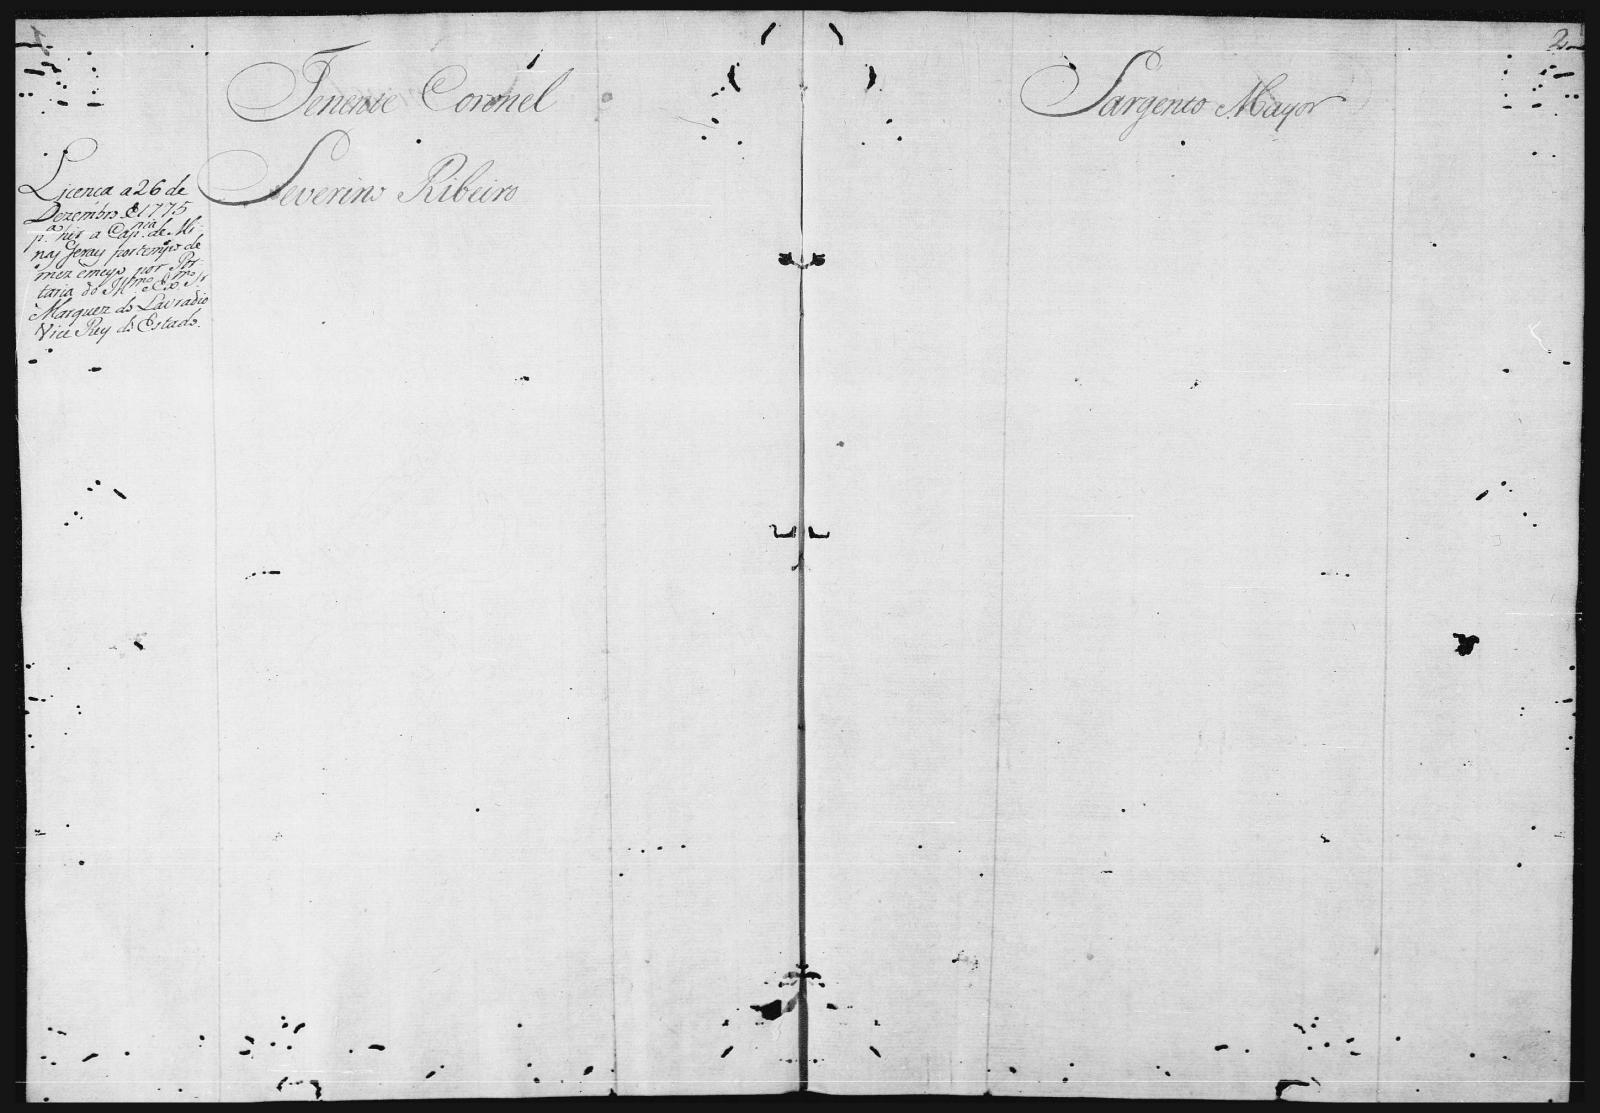 Tenente Coronel
Severino Ribeiro
Licenca a 26 de
Dezembro de 1775
p.ª hir a Cap.nia de Mi-
nas Geraes por tempo de
mez e meyo por Por-
taria do Ill.mo e Ex.mo Sr.
Marquez do Lavradio
Vice Rey do Estado.
2
Sargento Mayor